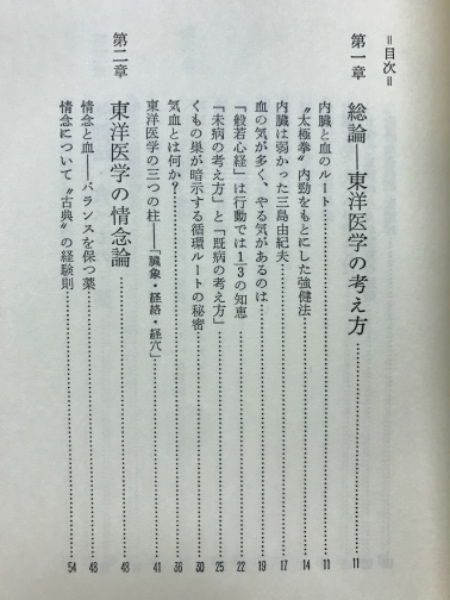 ＝目次＝
第一章　総論―東洋医学の考え方…………11
内臓と血のルート…………11
〝太極拳〟内勁をもとにした強健法…………14
内臓は弱かった三島由紀夫…………17
血の気が多く、やる気があるのは…………19
「般若心経」は行動では1/3の知恵…………22
「未病の考え方」と「既病の考え方」…………25
くもの巣が暗示する循環ルートの秘密…………30
気血とは何か？…………36
東洋医学の三つの柱――「臓象・経絡・経穴」…………41
第二章　東洋医学の情念論…………48
情念と血――バランスを保つ薬…………48
情念について〝古典〟の経験則…………54